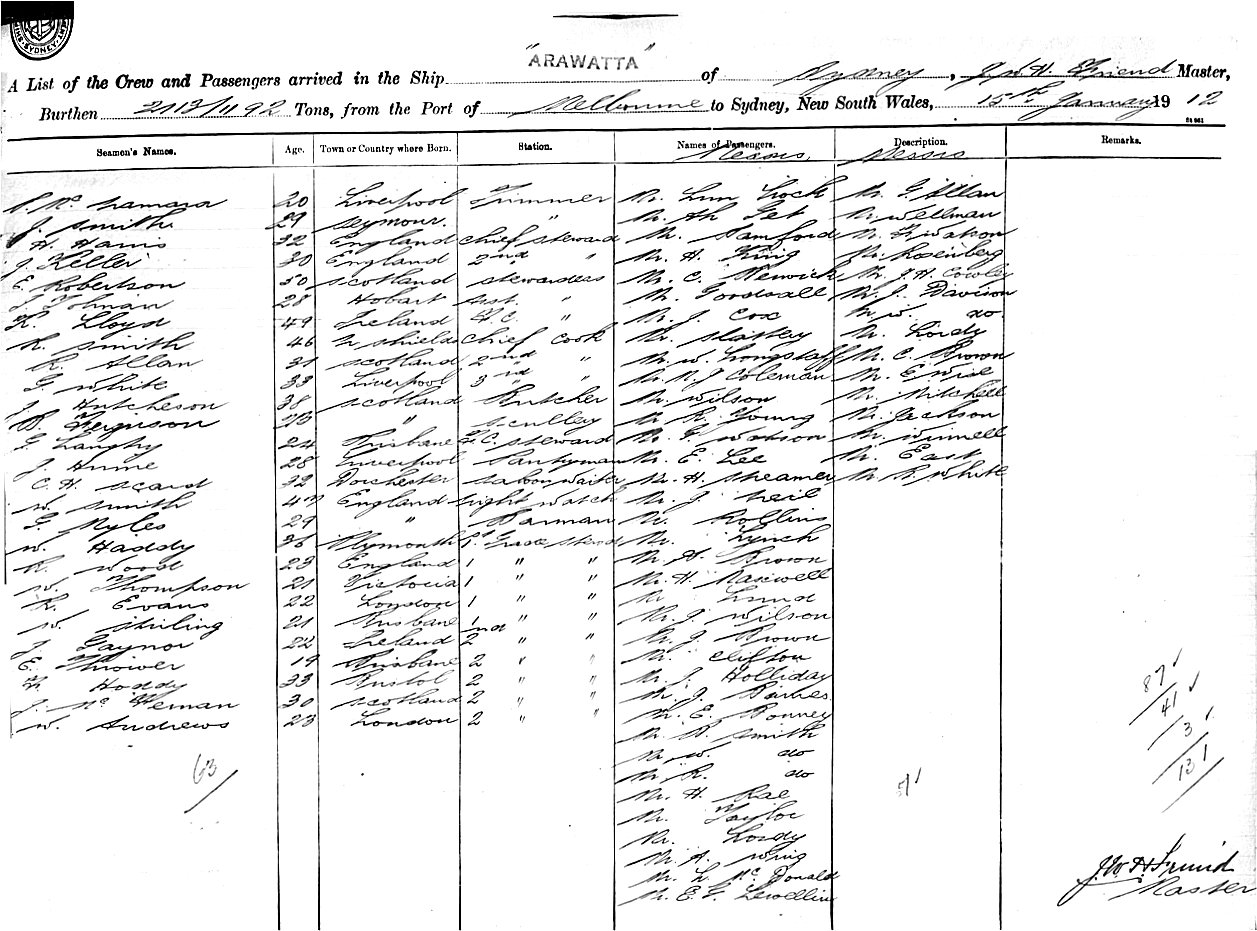 SYDNEY
A List of the Crew and Passengers arrived in the Ship "ARAWATTA" of Sydney, J. W. H. Friend Master,
Burthen 2113/1192 Tons, from the Port of Melbourne to Sydney, New South Wales, 15th January 1912
Seamen's Names. Age. Town or Country where Born. Station. Names of Passengers. Description. Remarks.
Messrs. Messrs
P. McNamara 20 Liverpool Trimmer Mr. Lum Hock Mr. G. Allan
J. Smith 29 Seymour. " Mr. Ah Get Mr Wellman
H. Harris 32 England Chief Steward Mr. Hamford Mr. F. Watson
J. Keller 30 England 2nd " Mr. H. King Mr. Rosenberg
E. Robertson 50 Scotland Stewardess Mr. C. Renwick Mr. J. H. Cowley
J. Tolman 28 Hobart Asst. " Mr. Goodsall Mr. J. Davison
K. Lloyd 49 Ireland F.C. " Mr. J. Cox Mr W. do
R. Smith 46 N Shields Chief Cook Mr. Slattey Mr. Lordy
R. Allan 31 Scotland 2nd " Mr. W. Longstaff Mr. C. Brown
G. White 33 Liverpool 3rd " Mr. N. J. Coleman Mr. E. Wise
J. Hutcheson 38 Scotland Butcher Mr. Wilson Mr. Mitchell
B. Ferguson 23 " Sculley Mr. R. Young Mr. Jackson
G. Langby 24 Brisbane F.C. Steward Mr. F. Watson Mr. Winnell
J. Hume 28 Liverpool Pantryman Mr. E. Lee Mr. East
C. H. Scard 32 Dorchester Saloon Waiter Mr. H. Sheamer Mr. R. White
W. Smith 47 England Night Watch Mr. J. Neil
G. Myles 29 " Barman Mr. Rollins
W. Haddy 36 Plymouth 1st Grade Steward Mr. Lynch
R. Wood 23 England 1 " " Mr. H. Brown
W. Thompson 21 Victoria 1 " " Mr. H. Maxwell
R. Evans 22 London 1 " " Mr. Lund
W. Stirling 21 Brisbane 1 " " Mr. J. Wilson
J. Gaynor 22 Ireland 2nd " " Mr. J. Brown
E. Thrower 19 Brisbane 2 " " Mr. Clifton
F. Hoddy 33 Bristol 2 " " Mr. J. Holliday
J. McHeman 30 Scotland 2 " " Mr. J. Barnes
W. Andrews 23 London 2 " " Mr. E. Bonney
Mr. B. Smith
Mr. W. do
Mr. R. do
Mr. H. Rae
Mr. Taylor
Mr. Lordy
Mr. A. Wing
Mr. L. McDonald
Mr. E. G. Lewellin
63
87
41
3
131
J. W. H. Friend
Master